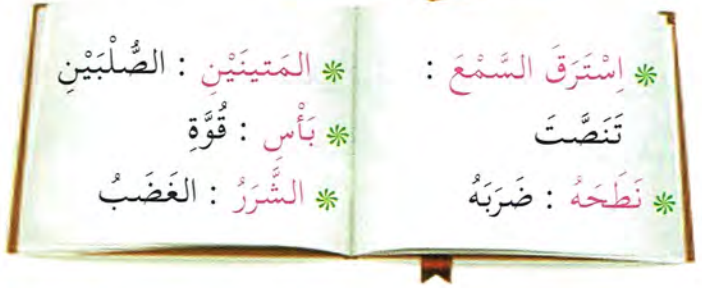 ❋ اِسْتَرَقَ السَّمْعَ :
تَنَصَّتَ
❋ نَطَحَهُ : ضَرَبَهُ
❋ المَتينَيْنِ : الصُّلْبَيْنِ
❋ بَأْسِ : قُوَّةِ
❋ الشَّرَرُ : الغَضَبُ